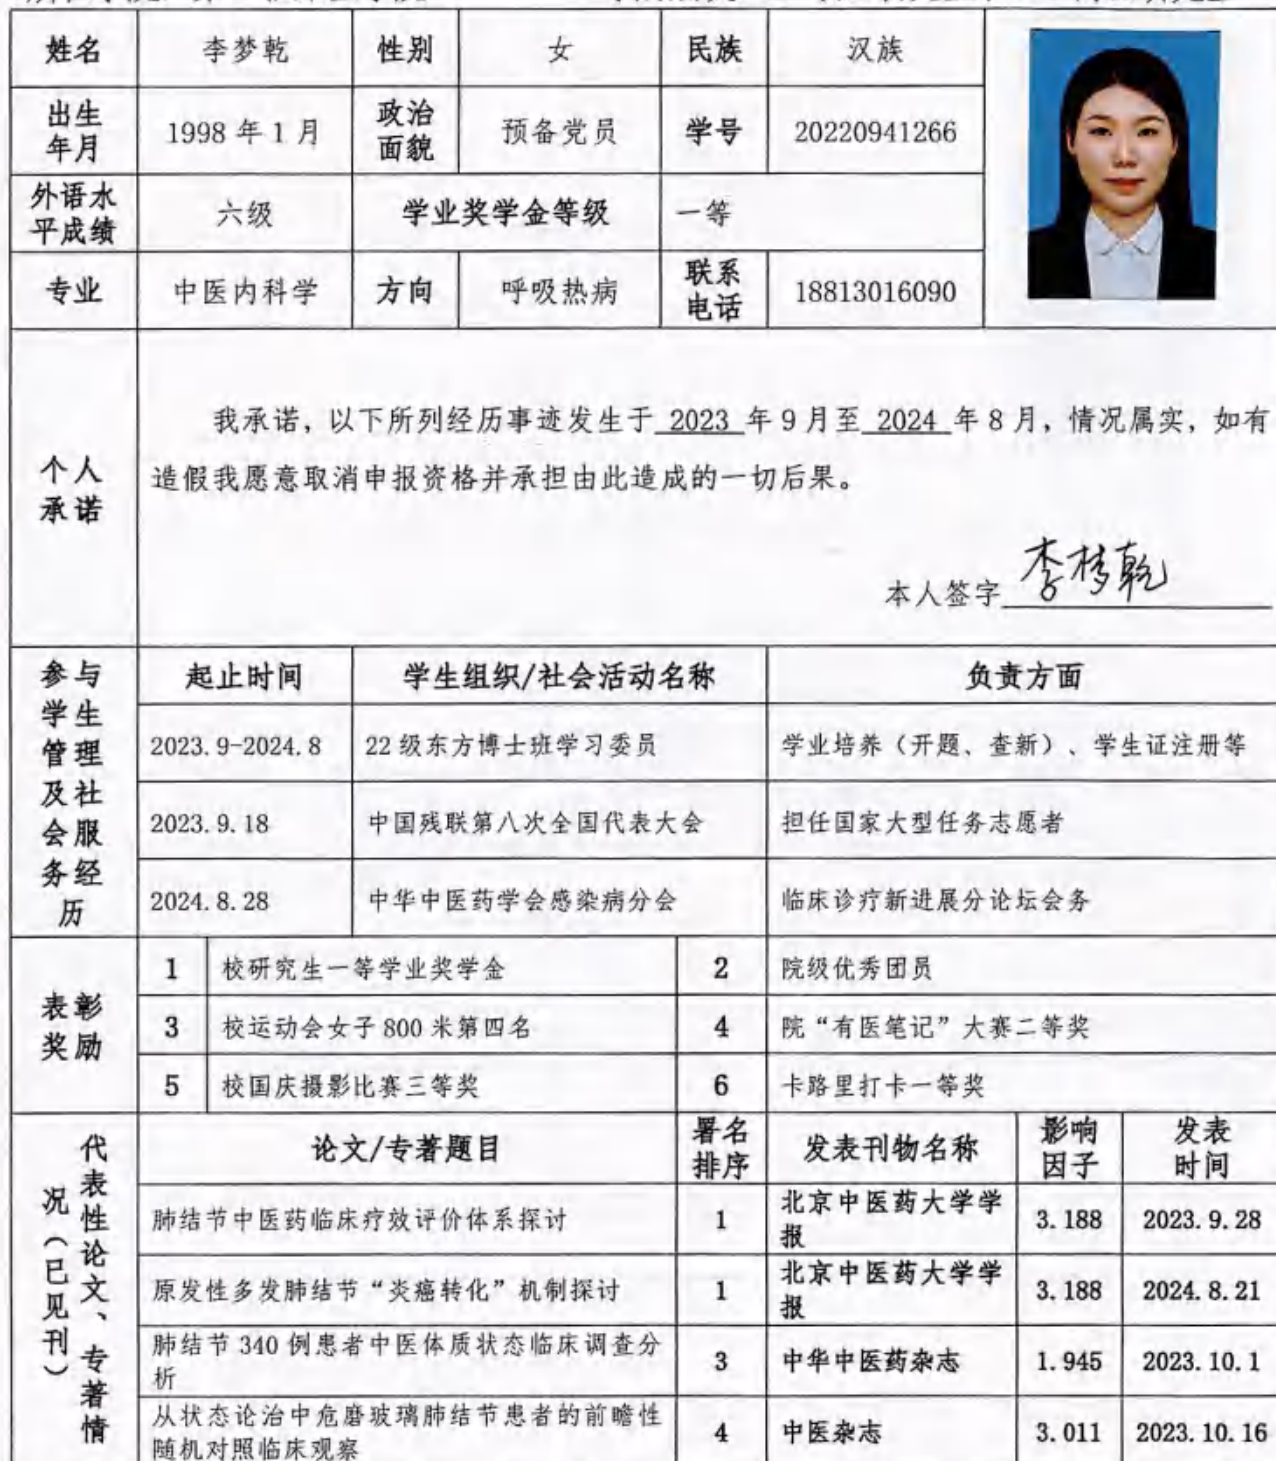 姓名 李梦乾 性别 女 民族 汉族
出生年月 1998 年 1 月 政治面貌 预备党员 学号 20220941266
外语水平成绩 六级 学业奖学金等级 一等
专业 中医内科学 方向 呼吸热病 联系电话 18813016090
个人承诺
我承诺，以下所列经历事迹发生于 2023 年 9 月至 2024 年 8 月，情况属实，如有
造假我愿意取消申报资格并承担由此造成的一切后果。
本人签字 李梦乾
参与学生管理及社会服务经历
起止时间 学生组织/社会活动名称 负责方面
2023.9-2024.8 22 级东方博士班学习委员 学业培养（开题、查新）、学生证注册等
2023.9.18 中国残联第八次全国代表大会 担任国家大型任务志愿者
2024.8.28 中华中医药学会感染病分会 临床诊疗新进展分论坛会务
表彰奖励
1 校研究生一等学业奖学金 2 院级优秀团员
3 校运动会女子 800 米第四名 4 院“有医笔记”大赛二等奖
5 校国庆摄影比赛三等奖 6 卡路里打卡一等奖
代表性论文、专著情况（已见刊）
论文/专著题目 署名排序 发表刊物名称 影响因子 发表时间
肺结节中医药临床疗效评价体系探讨 1 北京中医药大学学报 3.188 2023.9.28
原发性多发肺结节“炎癌转化”机制探讨 1 北京中医药大学学报 3.188 2024.8.21
肺结节 340 例患者中医体质状态临床调查分析 3 中华中医药杂志 1.945 2023.10.1
从状态论治中危磨玻璃肺结节患者的前瞻性随机对照临床观察 4 中医杂志 3.011 2023.10.16